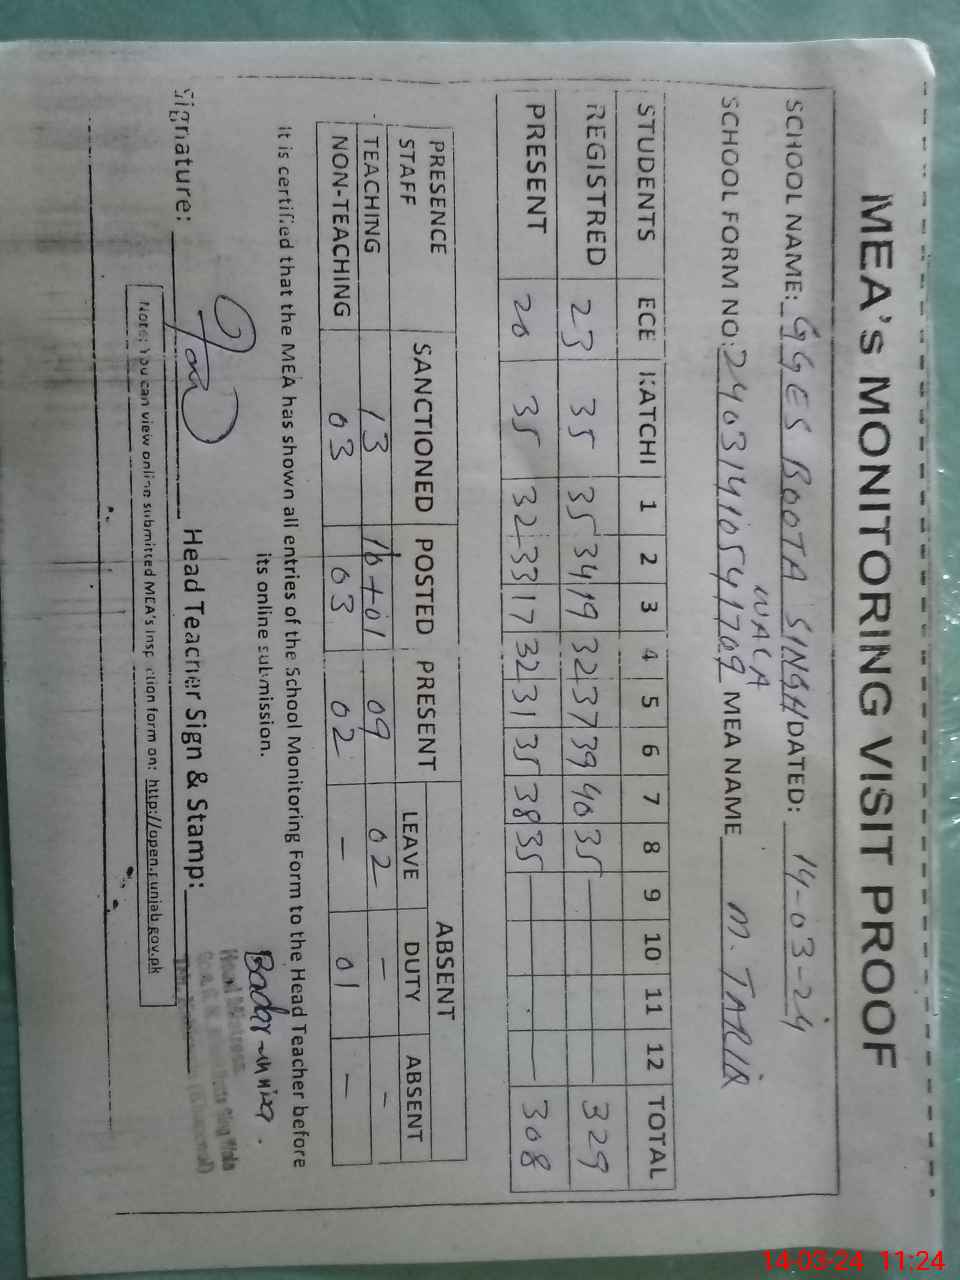 MEA's MONITORING VISIT PROOF
SCHOOL NAME: GGES BOOTA SINGH DATED: 14-03-24
WALA
SCHOOL FORM NO: 24031410541709 MEA NAME M. TARIQ
STUDENTS ECE KATCHI 1 2 3 4 5 6 7 8 9 10 11 12 TOTAL
REGISTRED 23 35 35 34 19 32 37 39 40 35 — — 329
PRESENT 20 35 32 33 17 32 31 35 38 35 — — 308
PRESENCE STAFF SANCTIONED POSTED PRESENT ABSENT
LEAVE DUTY ABSENT
TEACHING 13 10+01 09 02 - -
NON-TEACHING 03 03 02 - 01 -
It is certified that the MEA has shown all entries of the School Monitoring Form to the Head Teacher before
its online submission.
Badar-un-nisa.
Signature: Head Teacher Sign & Stamp:
Head Mistress
Note: You can view online submitted MEA's Inspection form on: http://open.punjab.gov.pk
14-03-24 11:24